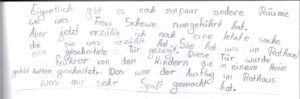 Eigentlich gibt es noch ein paar andere Räume
wo uns Frau Schewe rumgeführt hat.
Aber jetzt erzähle ich noch eine letzte sache
die sie uns erzählt hat. Sie hat uns im Rathaus
eine geschnitzte Tür gezeigt. Diese Tür wurde
früher von den Kindern die in einem Heim
gelebt hatten geschnitzt. Das war der Ausflug im Rathaus
was mir sehr Spaß gemacht hat.